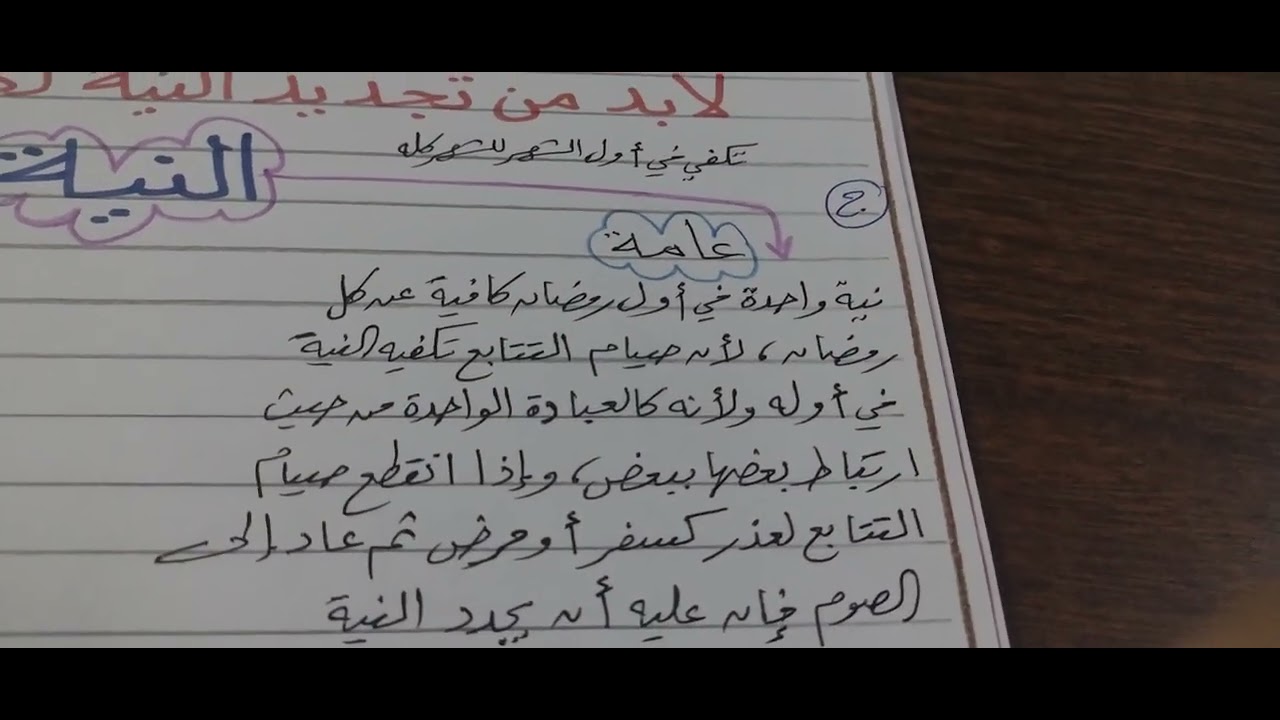 لابد من تجديد النية
تكفي في أول الشهر للشهر كله
ج
النية
عامة
نية واحدة في أول رمضان كافية عن كل
رمضان، لأن صيام التتابع تكفيه النية
في أوله ولأنه كالعبادة الواحدة من حيث
ارتباط بعضها ببعض، وإذا انقطع صيام
التتابع لعذر كسفر أو مرض ثم عاد إلى
الصوم فإن عليه أن يجدد النية